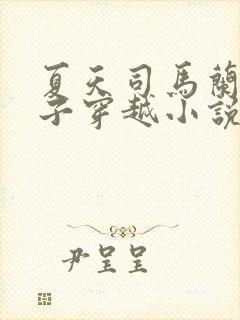 夏天司馬蘭
子穿越小説
尹呈呈